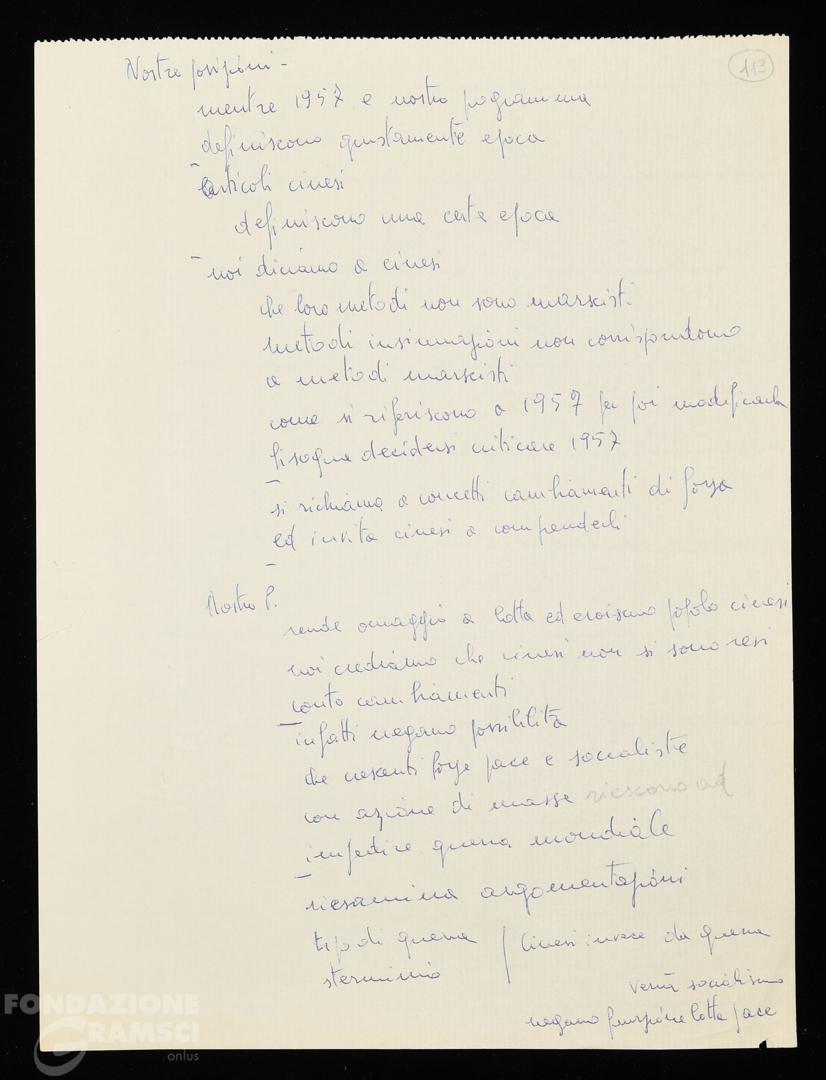 113
Nostre posizioni -
mentre 1957 e nostro pogramma
definiscono giustamente epoca
- articoli cinesi
definiscono una certa epoca
- noi diciamo a cinesi
che loro metodi non sono marxisti
metodi insinuazioni non corrispondono
a metodi marxisti
come si riferiscono a 1957 per poi modificarla
bisogna decidersi criticare 1957
-
si richiama a concetti cambiamenti di forza
ed invita cinesi a comprenderli
-
Nostro P.
rende omaggio a lotta ed eroismo popolo cinesi
noi crediamo che cinesi non si sono resi
conto cambiamenti
- infatti negano possibilità
che crescenti forze pace e socialiste
con azione di masse riescono ad
impedire guerra mondiale
- riesamina argomentazioni
tipo di guerra / Cinesi invece da guerra
sterminio
verrà socialismo
negano funzione lotta pace
FONDAZIONE
GRAMSCI
onlus